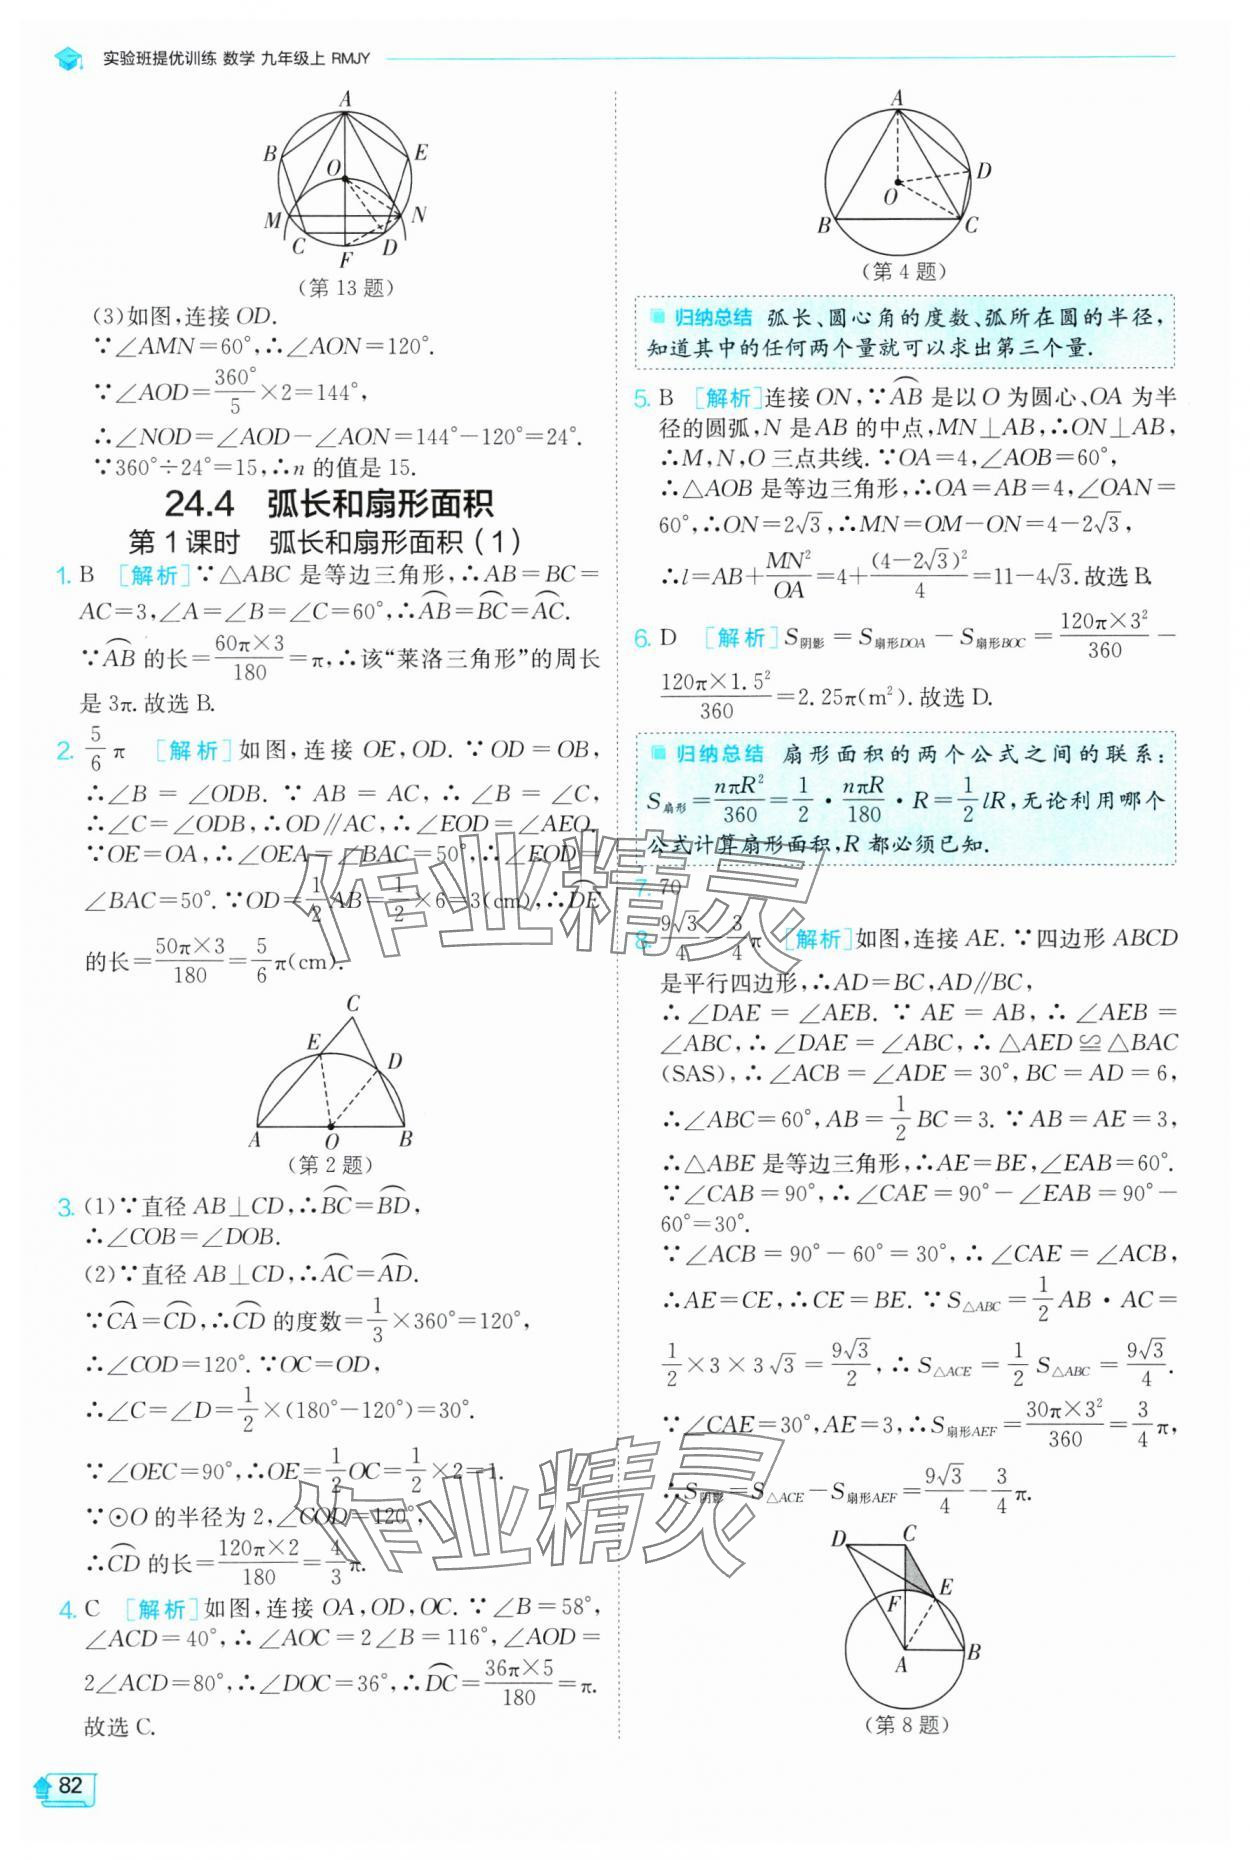 实验班提优训练 数学 九年级上 RMJY
A
B
E
O
M
N
C
D
F
(第 13 题)
(3)如图,连接 OD.
∵∠AMN=60°,∴∠AON=120°.
∵∠AOD=360°/5×2=144°,
∴∠NOD=∠AOD-∠AON=144°-120°=24°.
∵360°÷24°=15,∴n 的值是 15.
24.4 弧长和扇形面积
第 1 课时 弧长和扇形面积(1)
1. B [解析]∵△ABC 是等边三角形,∴AB=BC=
AC=3,∠A=∠B=∠C=60°,∴⌒AB=⌒BC=⌒AC.
∵⌒AB 的长=60π×3/180=π,∴该“莱洛三角形”的周长
是 3π.故选 B.
2. 5/6 π [解析]如图,连接 OE,OD.∵OD=OB,
∴∠B=∠ODB.∵AB=AC,∴∠B=∠C,
∴∠C=∠ODB,∴OD∥AC,∴∠EOD=∠AEO.
∵OE=OA,∴∠OEA=∠BAC=50°,∴∠EOD=
∠BAC=50°.∵OD=1/2AB=1/2×6=3(cm),∴⌒DE
的长=50π×3/180=5/6π(cm).
C
E
D
A
O
B
(第 2 题)
3. (1)∵直径 AB⊥CD,∴⌒BC=⌒BD,
∴∠COB=∠DOB.
(2)∵直径 AB⊥CD,∴⌒AC=⌒AD.
∵⌒CA=⌒CD,∴⌒CD 的度数=1/3×360°=120°,
∴∠COD=120°.∵OC=OD,
∴∠C=∠D=1/2×(180°-120°)=30°.
∵∠OEC=90°,∴OE=1/2OC=1/2×2=1.
∵⊙O 的半径为 2,∠COD=120°,
∴⌒CD 的长=120π×2/180=4/3π.
4. C [解析]如图,连接 OA,OD,OC.∵∠B=58°,
∠ACD=40°,∴∠AOC=2∠B=116°,∠AOD=
2∠ACD=80°,∴∠DOC=36°,∴⌒DC=36π×5/180=π.
故选 C.
82
A
D
O
B
C
(第 4 题)
归纳总结 弧长、圆心角的度数、弧所在圆的半径,
知道其中的任何两个量就可以求出第三个量.
5. B [解析]连接 ON,∵⌒AB 是以 O 为圆心、OA 为半
径的圆弧,N 是 AB 的中点,MN⊥AB,∴ON⊥AB,
∴M,N,O 三点共线.∵OA=4,∠AOB=60°,
∴△AOB 是等边三角形,∴OA=AB=4,∠OAN=
60°,∴ON=2√3,∴MN=OM-ON=4-2√3,
∴l=AB+MN²/OA=4+(4-2√3)²/4=11-4√3.故选 B.
6. D [解析]S阴影=S扇形DOA-S扇形BOC=120π×3²/360-
120π×1.5²/360=2.25π(m²).故选 D.
归纳总结 扇形面积的两个公式之间的联系:
S扇形=nπR²/360=1/2·nπR/180·R=1/2lR,无论利用哪个
公式计算扇形面积,R 都必须已知.
7. 70
8. 9√3/4-3/4π [解析]如图,连接 AE.∵四边形 ABCD
是平行四边形,∴AD=BC,AD∥BC,
∴∠DAE=∠AEB.∵AE=AB,∴∠AEB=
∠ABC,∴∠DAE=∠ABC,∴△AED≌△BAC
(SAS),∴∠ACB=∠ADE=30°,BC=AD=6,
∴∠ABC=60°,AB=1/2BC=3.∵AB=AE=3,
∴△ABE 是等边三角形,∴AE=BE,∠EAB=60°.
∵∠CAB=90°,∴∠CAE=90°-∠EAB=90°-
60°=30°.
∵∠ACB=90°-60°=30°,∴∠CAE=∠ACB,
∴AE=CE,∴CE=BE.∵S△ABC=1/2AB·AC=
1/2×3×3√3=9√3/2,∴S△ACE=1/2S△ABC=9√3/4.
∵∠CAE=30°,AE=3,∴S扇形AEF=30π×3²/360=3/4π,
∴S阴影=S△ACE-S扇形AEF=9√3/4-3/4π.
D
C
E
F
A
B
(第 8 题)
作业精灵
作业精灵